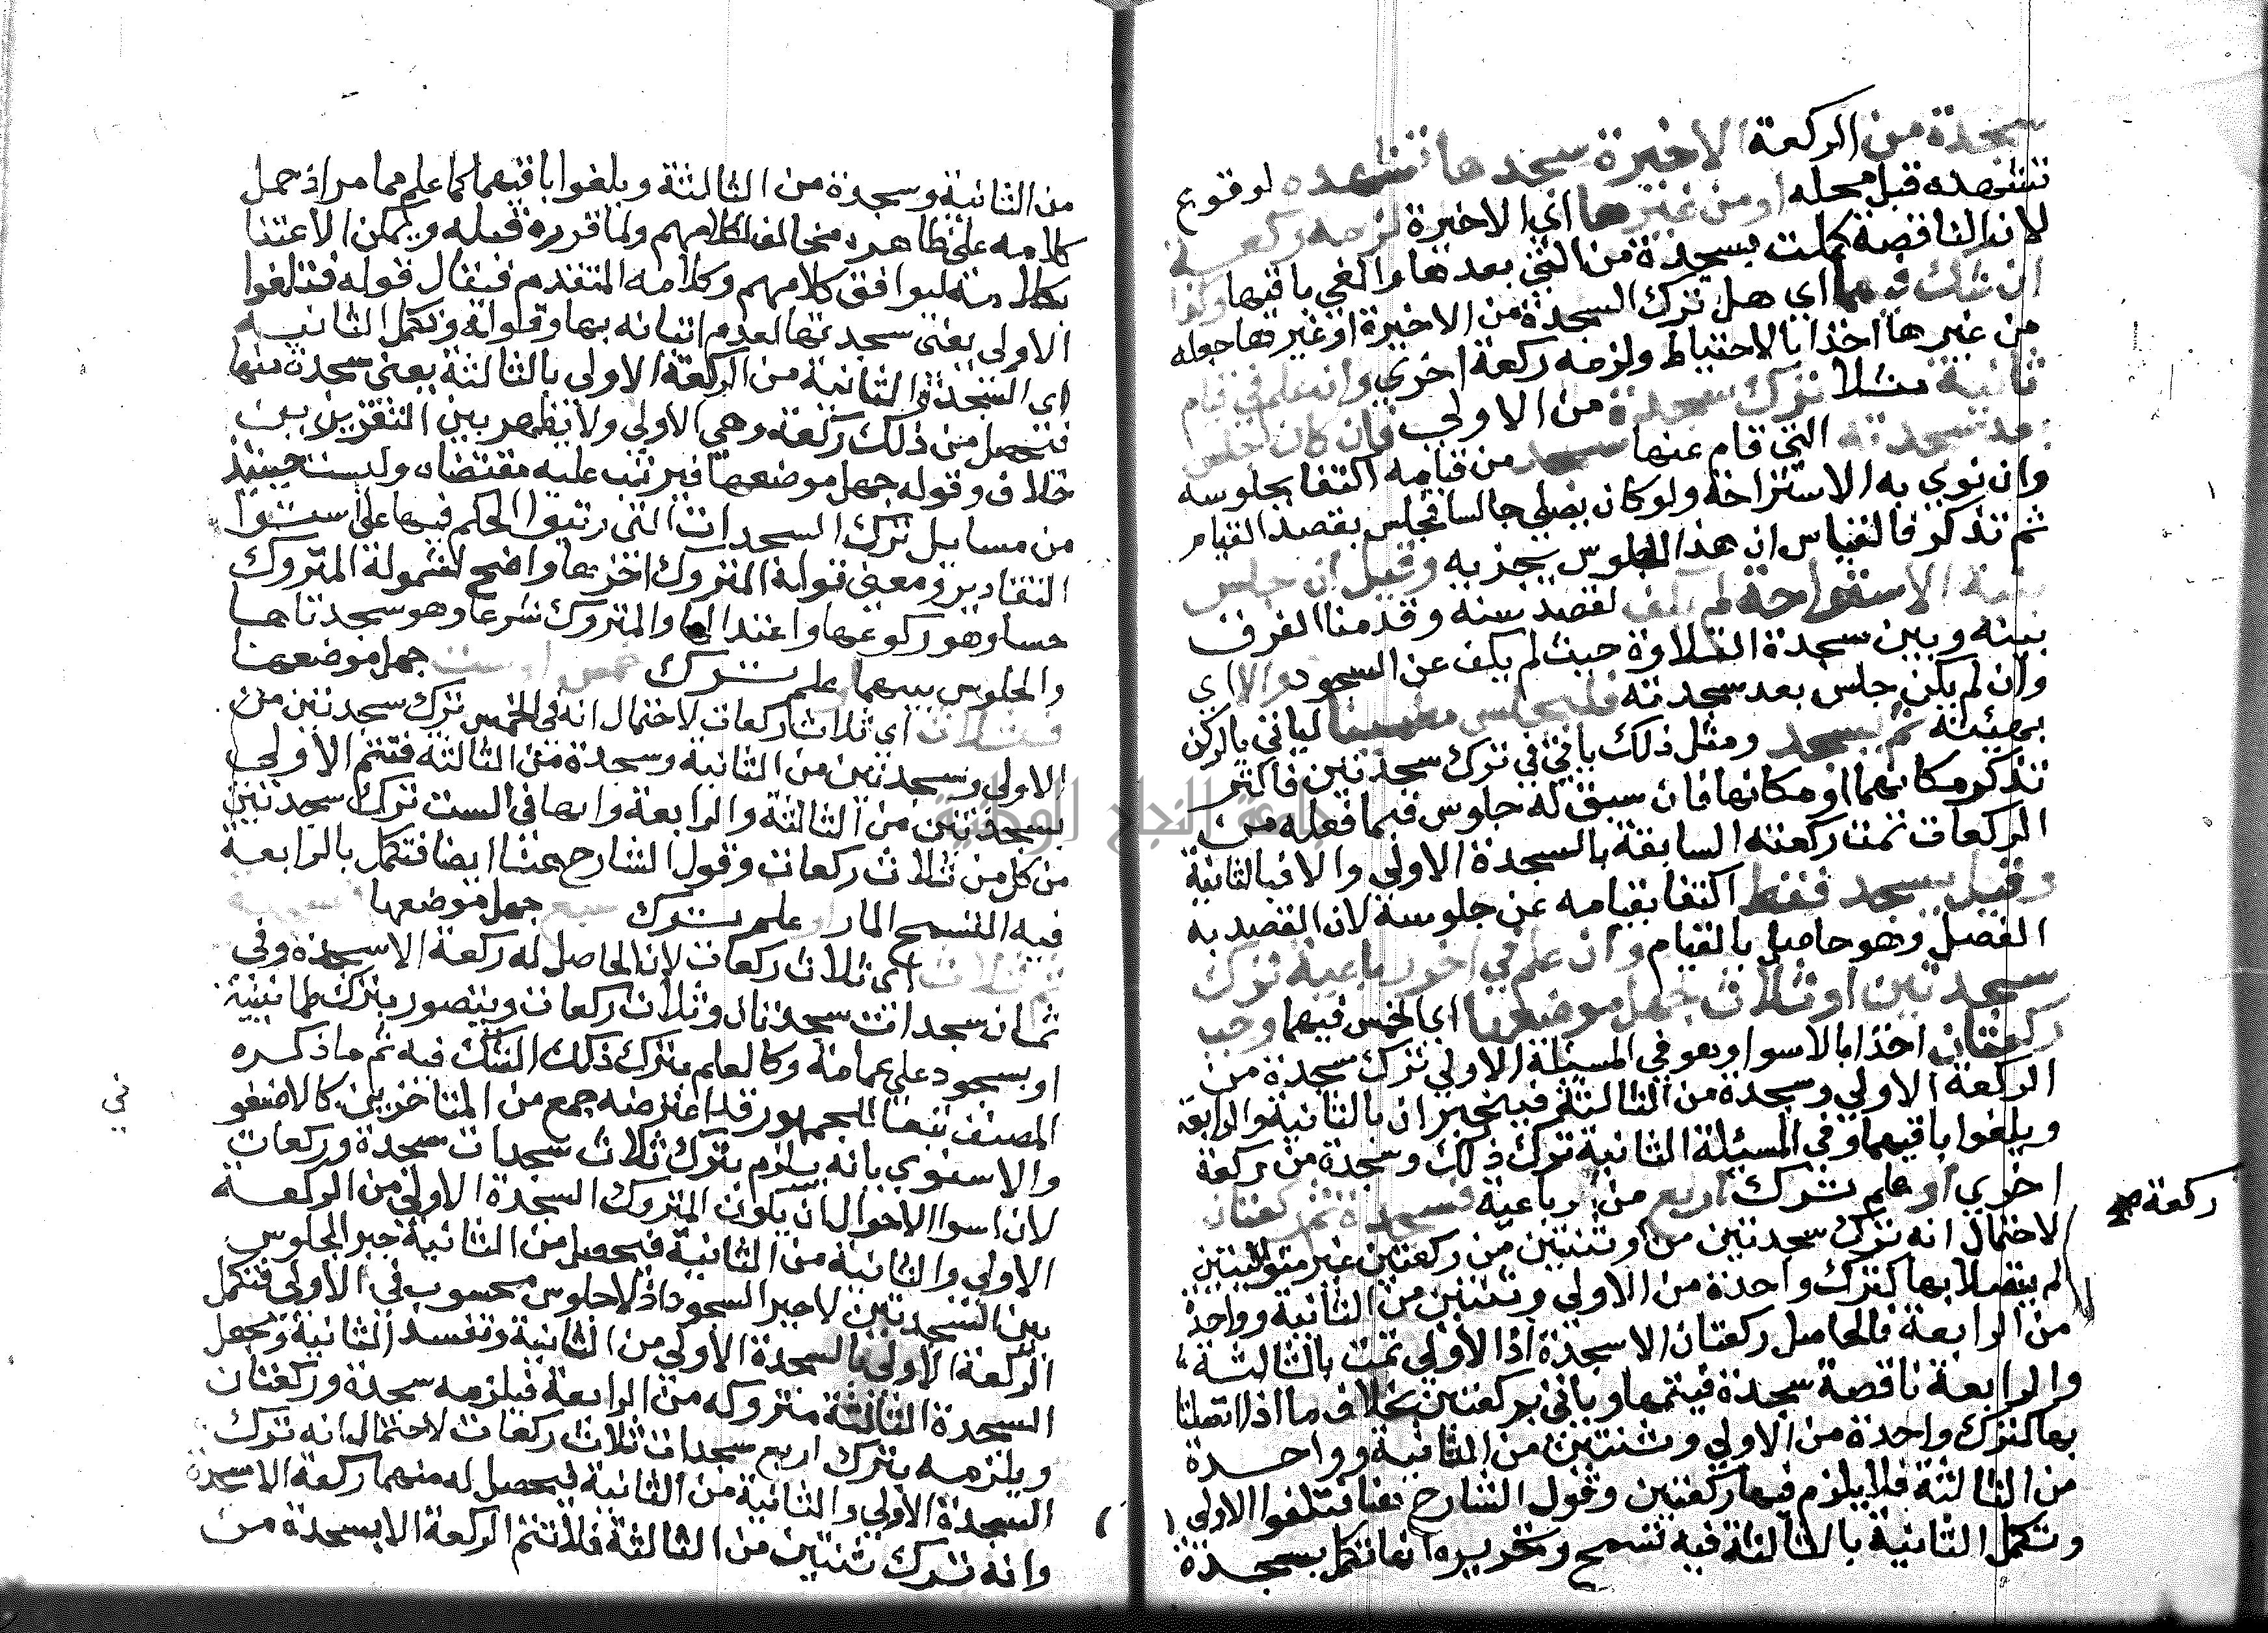 سجدة من الركعة الاخيرة سجدها تشهده لوقوع
تشهده قبل محله او من غيرها اي الاخيرة لزمه ركعة
لان الناقصة كملت بسجدة من التي بعدها والغي باقيها وكذا
ان شك فيهما اي هل ترك السجدة من الاخيرة او غيرها جعله
من غيرها اخذا بالاحتياط ولزمه ركعة اخري وان علم في قيام
ثانية مثلا ترك سجدة من الاولي فان كان جلس
بعد سجدته التي قام عنها سجد من قيامه اكتفا بجلوسه
وان نوي به الاستراحة ولو كان يصلي جالسا فجلس بقصد القيام
ثم تذكر فالقياس ان هذا الجلوس يجزيه وقيل ان جلس
بنية الاستراحة لم يكف لقصد سنة وقدمنا الفرق
بينه وبين سجدة التلاوة حيث لم يكف عن السجود والا اي
وان لم يكن جلس بعد سجدته فليجلس مطمئنا لياتي بالركن
بهيئته ثم يسجد ومثل ذلك ياتي في ترك سجدتين فاكثر
تذكر مكانهما او مكانها فان سبق له جلوس فيما فعله من
الركعات تمت ركعته السابقة بالسجدة الاولي والا فبالثانية
وقيل يسجد فقط اكتفا بقيامه عن جلوسه لان القصد به
الفصل وهو حاصل بالقيام وان علم في اخر رباعية ترك
سجدتين او ثلاث جهل موضعها اي الخمس فيهما وجب
ركعتان اخذا بالاسوا وهو في المسئلة الاولي ترك سجدة من
الركعة الاولي وسجدة من الثالثة فينجبران بالثانية والرابعة
ويلغوا باقيهما وفي المسئلة الثانية ترك ذلك وسجدة من ركعة
اخري او علم ترك اربع من رباعية فسجدة ثم ركعتان
ركعة
لاحتمال انه ترك سجدتين من وثنتين من ركعتين غير متواليتين
لم يتصلا بها كترك واحدة من الاولي وثنتين من الثانية وواحدة
من الرابعة فالحاصل ركعتان الا سجدة اذ الاولي تمت بالثالثة
والرابعة ناقصة سجدة فيتمها وياتي بركعتين بخلاف ما اذا اتصلتا
بها كترك واحدة من الاولي وثنتين من الثانية وواحدة
من الثالثة فلا يلزم فيها ركعتين وقول الشارح هنا فتلغوا الاولى
وتكمل الثانية بالثالثة فيه تسمح وتحريره انها تكمل بسجدة
من الثانية وسجدة من الثالثة ويلغوا باقيهما كما علم مما مر اذ حمل
كلامه على ظاهره مخالف لكلامهم ولما قرره قبله ويمكن الاعتنا
بكلامه ليوافق كلامهم وكلامه المتقدم فيقال قوله فتلغوا
الاولى يعني سجدتها لعدم اتيانه بها وقوله وتكمل الثانية
اي السجدة الثانية من الركعة الاولي بالثالثة يعني سجدة منها
فيحصل من ذلك ركعة وهي الاولي ولا يظهر بين التقريرين
خلاف وقوله جهل موضعها فيرتب عليه مقتضاه وليست حينئذ
من مسايل ترك السجدات التي رتبوا الحكم فيها على استوا
التقادير ومعنى قوله المتروك اخرها واضح لشموله المتروك
حسا وهو ركوعها واعتدالها والمتروك شرعا وهو سجدتاها
والجلوس بينهما او علم ترك خمس او ست جهل موضعها
فثلاث اي ثلاث ركعات لاحتمال انه في الخمس ترك سجدتين من
الاولى وسجدتين من الثانية وسجدة من الثالثة فتتم الاولى
بسجدتين من الثالثة والرابعة وانها في الست ترك سجدتين
من كل من ثلاث ركعات وقول الشارح هنا ايضا فتكمل بالرابعة
فيه التسمح المار او علم ترك سبع جهل موضعها فسجدة
ثم ثلاث اي ثلاث ركعات لان الحاصل له ركعة الا سجدة وفي
ثمان سجدات سجدتان وثلاث ركعات ويتصور بترك طمانينة
او بسجود على عمامة وكالعلم بترك ذلك الشك فيه ثم ما ذكره
المصنف تبعا للجمهور قد اعترضه جمع من المتاخرين كالاصفو
في
والاسنوي بانه يلزم بترك ثلاث سجدات سجدة وركعات
لان اسوا الاحوال ان يكون المتروك السجدة الاولي من الركعة
الاولي والثانية من الثانية فيحصل من الثانية جبر الجلوس
بين السجدتين لا جبر السجود اذ لا جلوس محسوب في الاولي فتكمل
الركعة الاولي بالسجدة الاولي من الثانية وتفسد الثانية وتجعل
السجدة الثالثة متروكه من الرابعة فيلزمه سجدة وركعتان
ويلزمه بترك اربع سجدات ثلاث ركعات لاحتمال انه ترك
السجدة الاولي والثانية من الثانية فيحصل له منهما ركعة الا سجدة
وانه ترك ثنتين من الثالثة فلا تتم الركعة الا بسجدة من
جامعة النجاح الوطنية